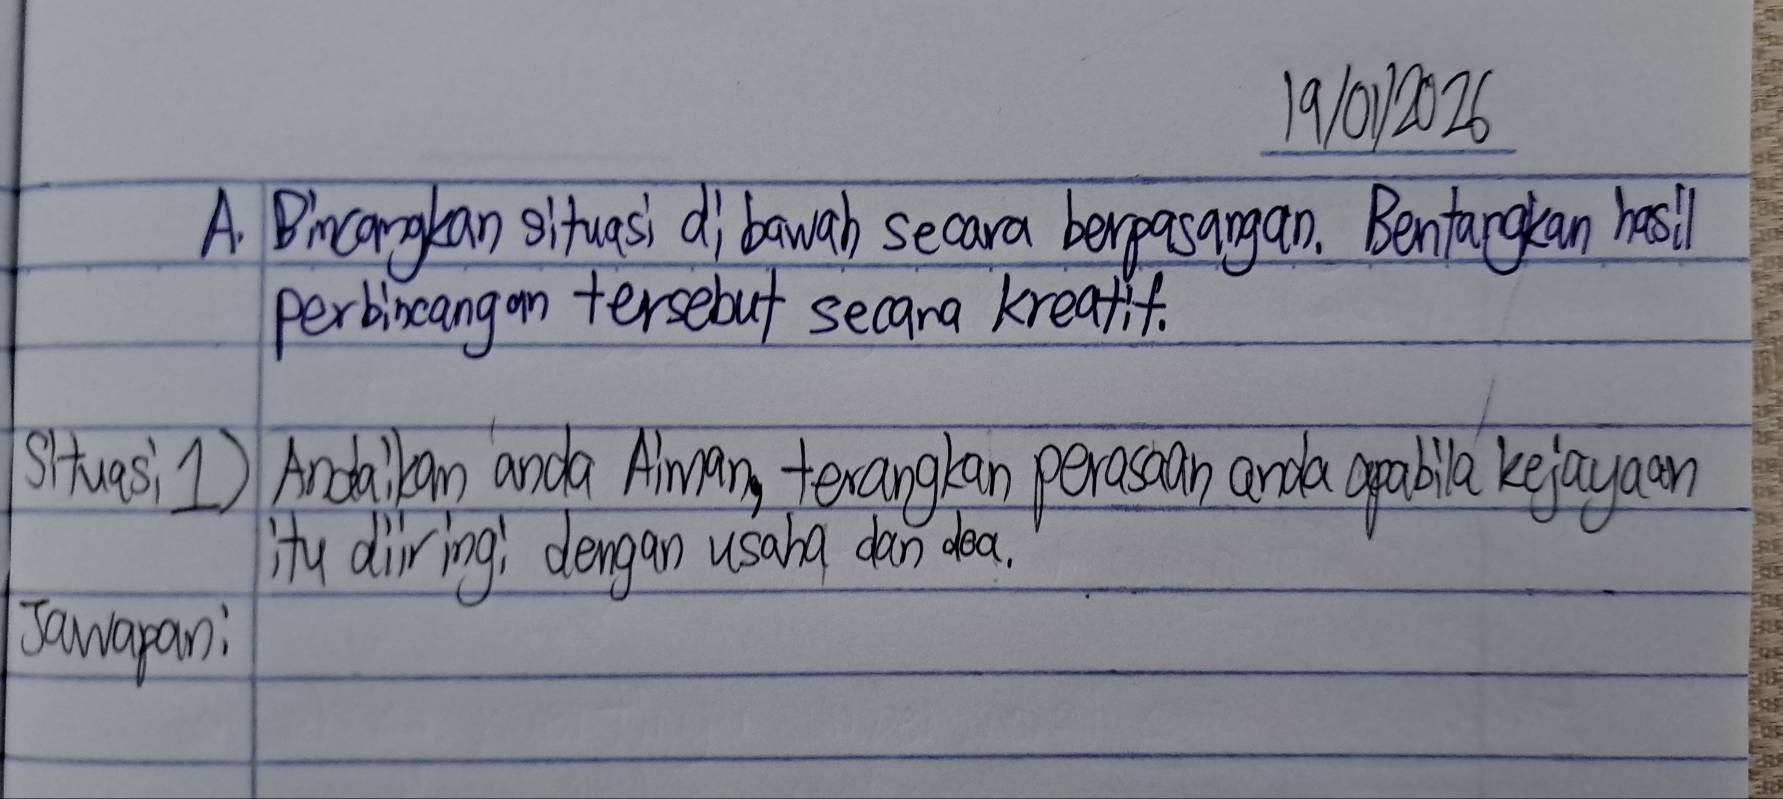 19/01/2026
A. Bincangkan situasi di bawah secara berpasangan. Bentangkan hasil
perbincangan tersebut secara kreatif.
Situasi 1) Andaikan anda Aiman, terangkan perasaan anda apabila kejayaan
itu diiringi dengan usaha dan doa.
Jawapan: